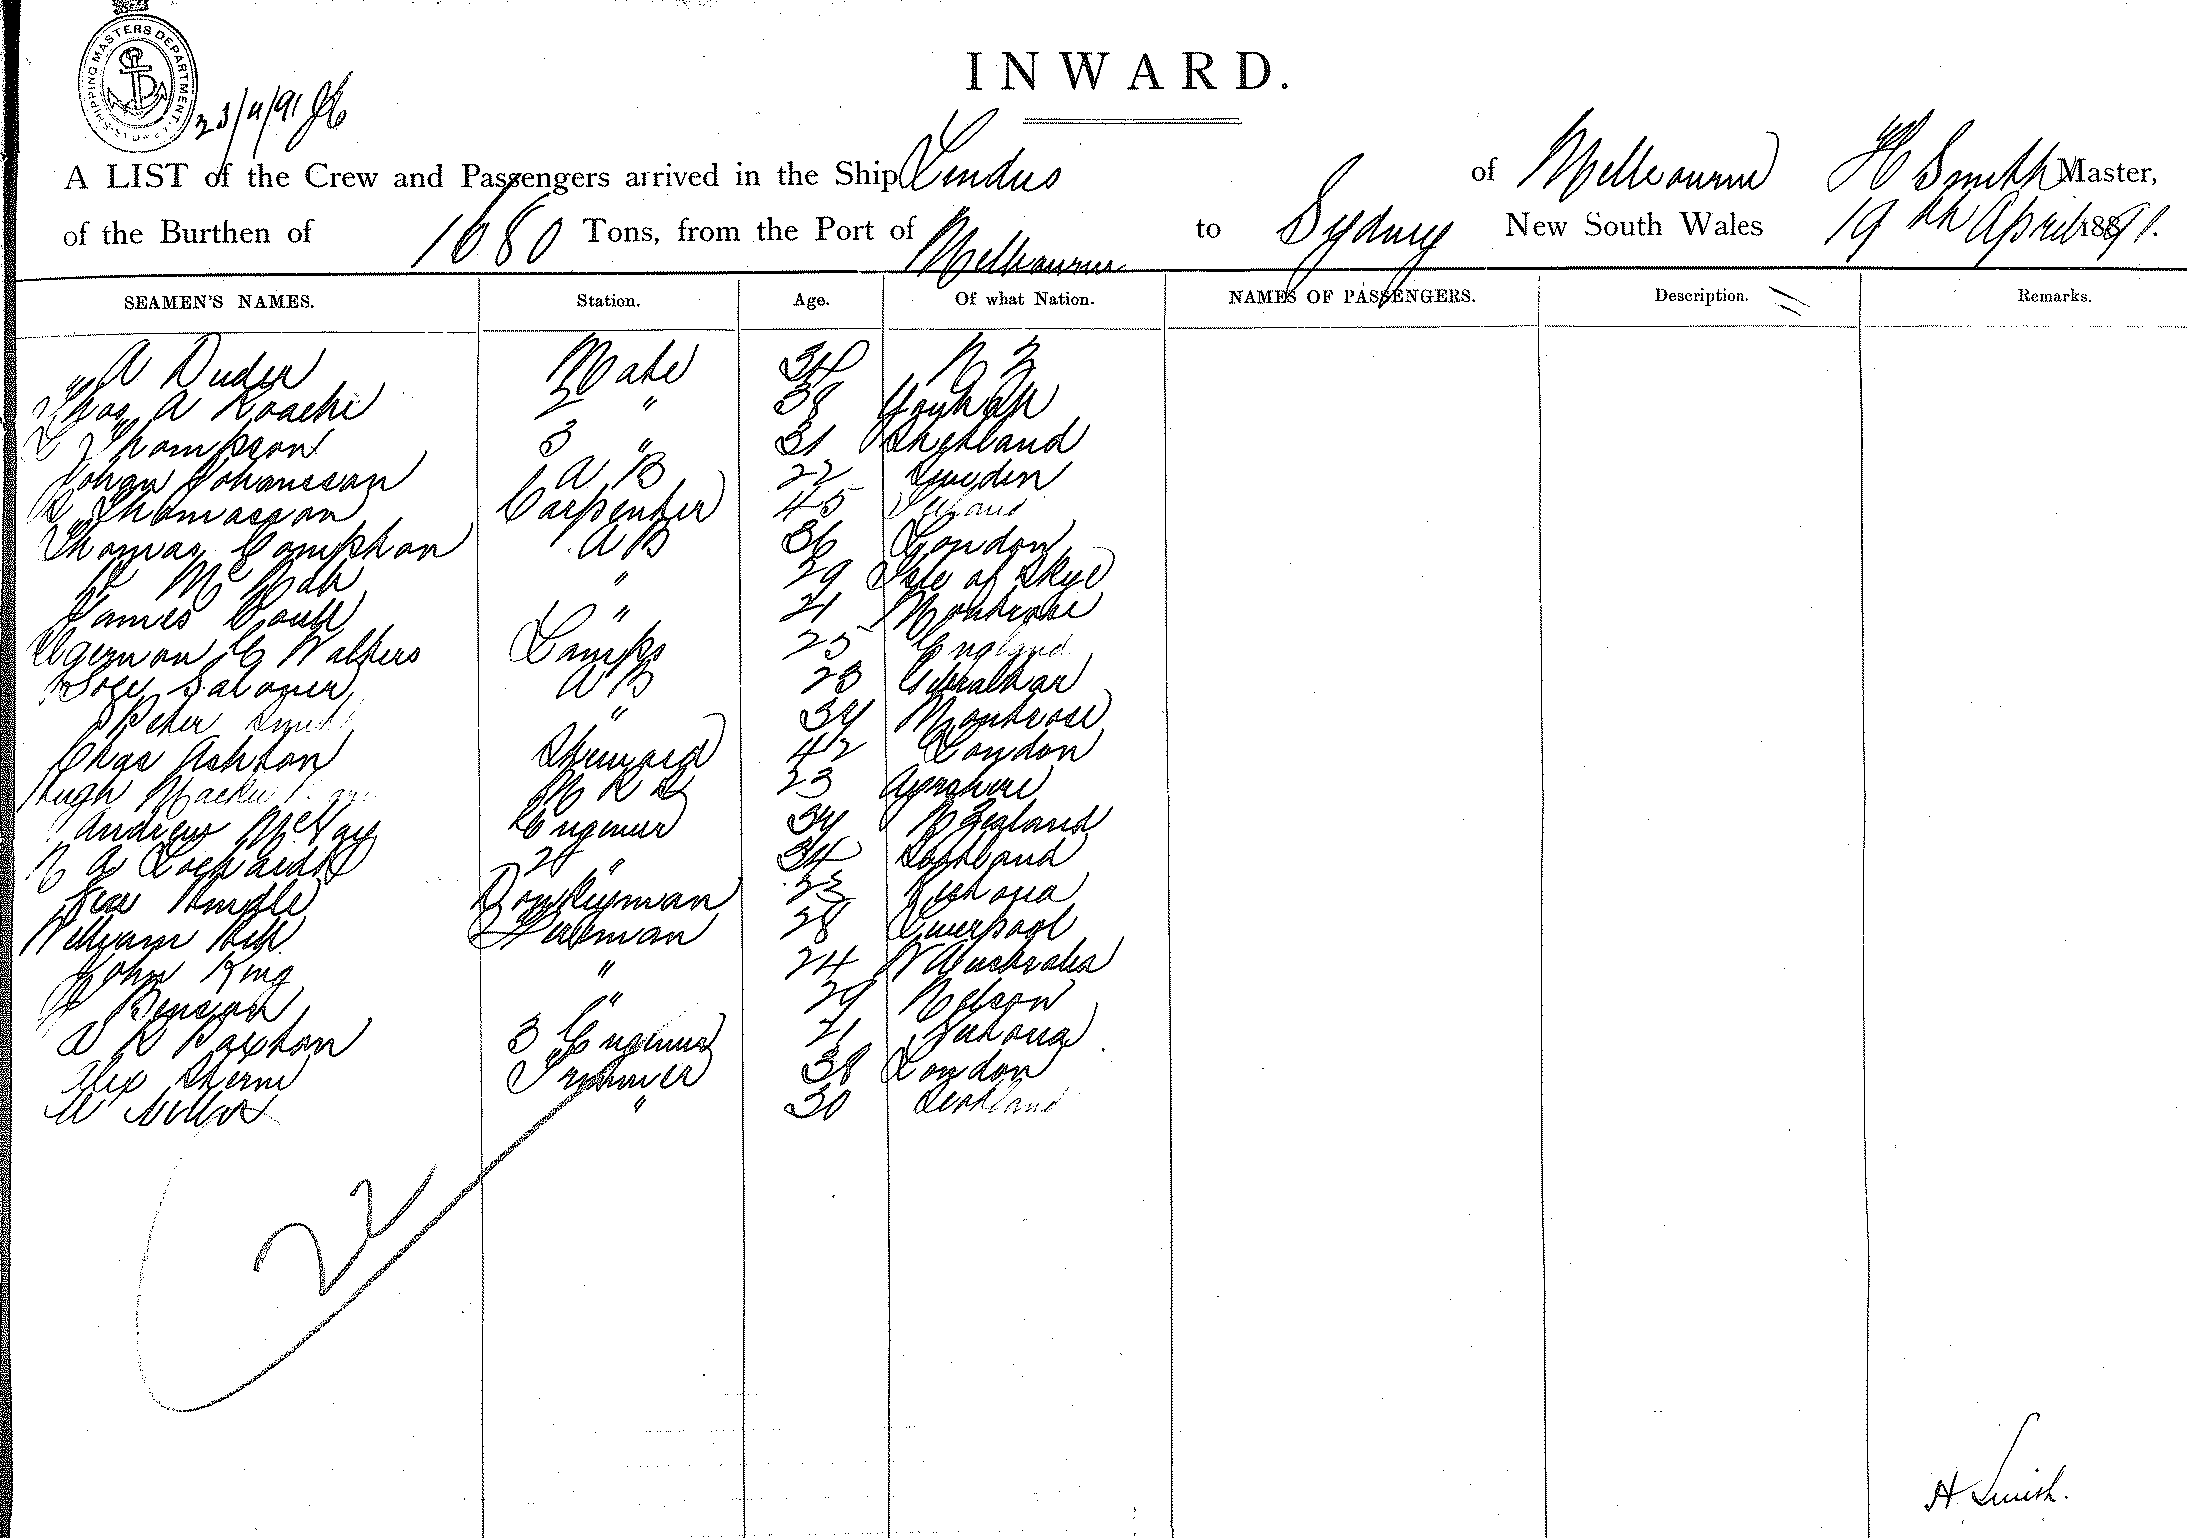 SHIPPING MASTERS DEPARTMENT
23/4/91
INWARD.
A LIST of the Crew and Passengers arrived in the Ship Lindus of Melbourne H Smith Master,
of the Burthen of 1680 Tons, from the Port of Melbourne to Sydney New South Wales 19th April 1891.
SEAMEN'S NAMES. Station. Age. Of what Nation. NAMES OF PASSENGERS. Description. Remarks.
A Duder Mate 34 N Z
Thos A Roache 2 " 38 Youghal
L Thompson 3 " 31 Shetland
Johan Johansson A B 22 Sweden
Thomasson Carpenter 45
Thomas Compton A B 36 London
McRah " 29 Isle of Skye
James Coull " 21 Montrose
Algernon G Walters Lamps 25 England
A B 23 Gibraltar
Peter Smith " 34 Montrose
Chas Ashton Steward 42 London
Hugh 23 Ayrshire
Andrew McVay Engineer 34 N Zealand
N A Lockardt 2 " 34 Scotland
Hindle Donkeyman 23 Victoria
William Hill Fireman 28 Liverpool
John King " 24 W Australia
Benson " 29 Nelson
A R Paxton 3 Engineer 21 Victoria
Alex Trimmer 38 London
" 30 Scotland
22
H Smith.